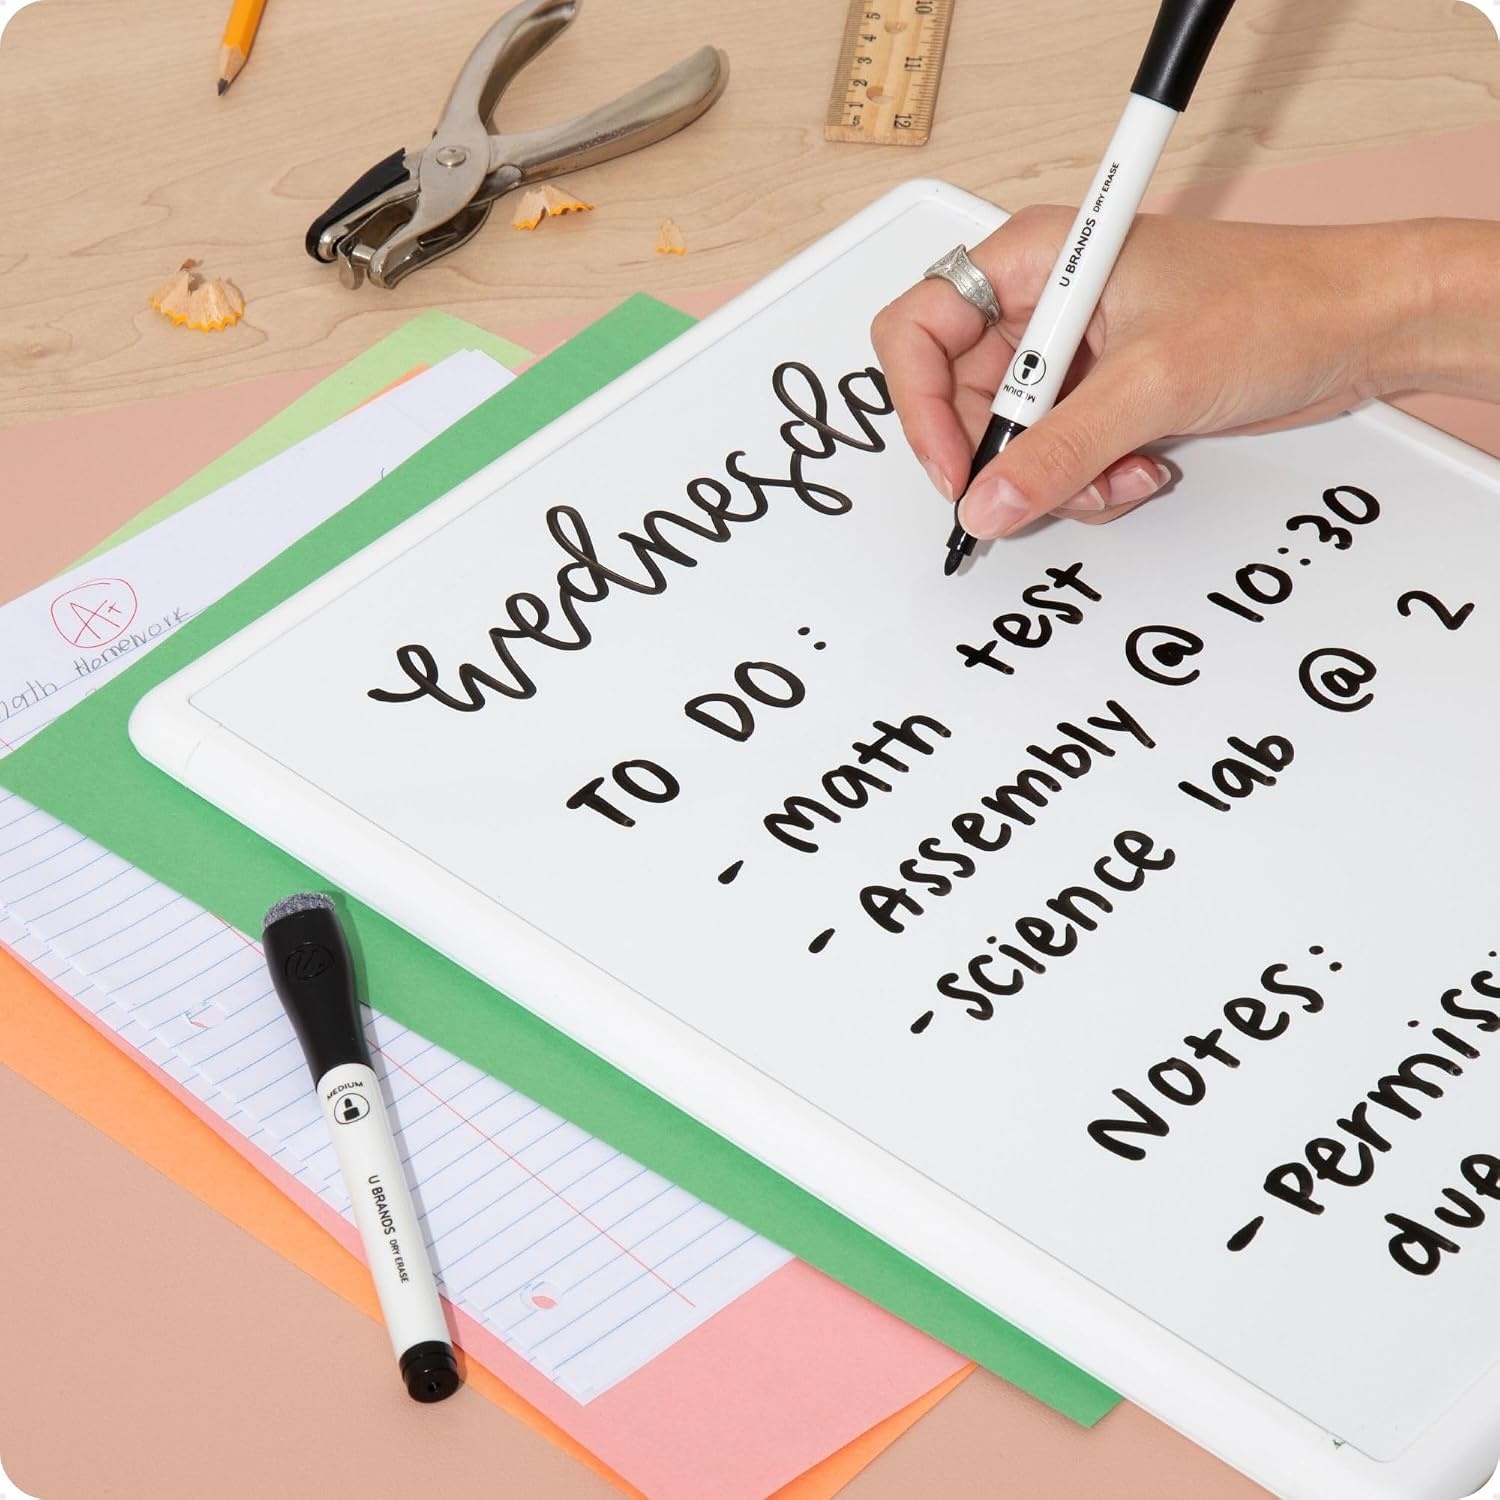 Wednesda
TO DO:
- Math test
- Assembly @ 10:30
- Science lab @ 2
Notes:
- Permiss
due
U BRANDS DRY ERASE
MEDIUM
MEDIUM
U BRANDS DRY ERASE
A+
Math Homework
1 2 3 4 5
10 11 12